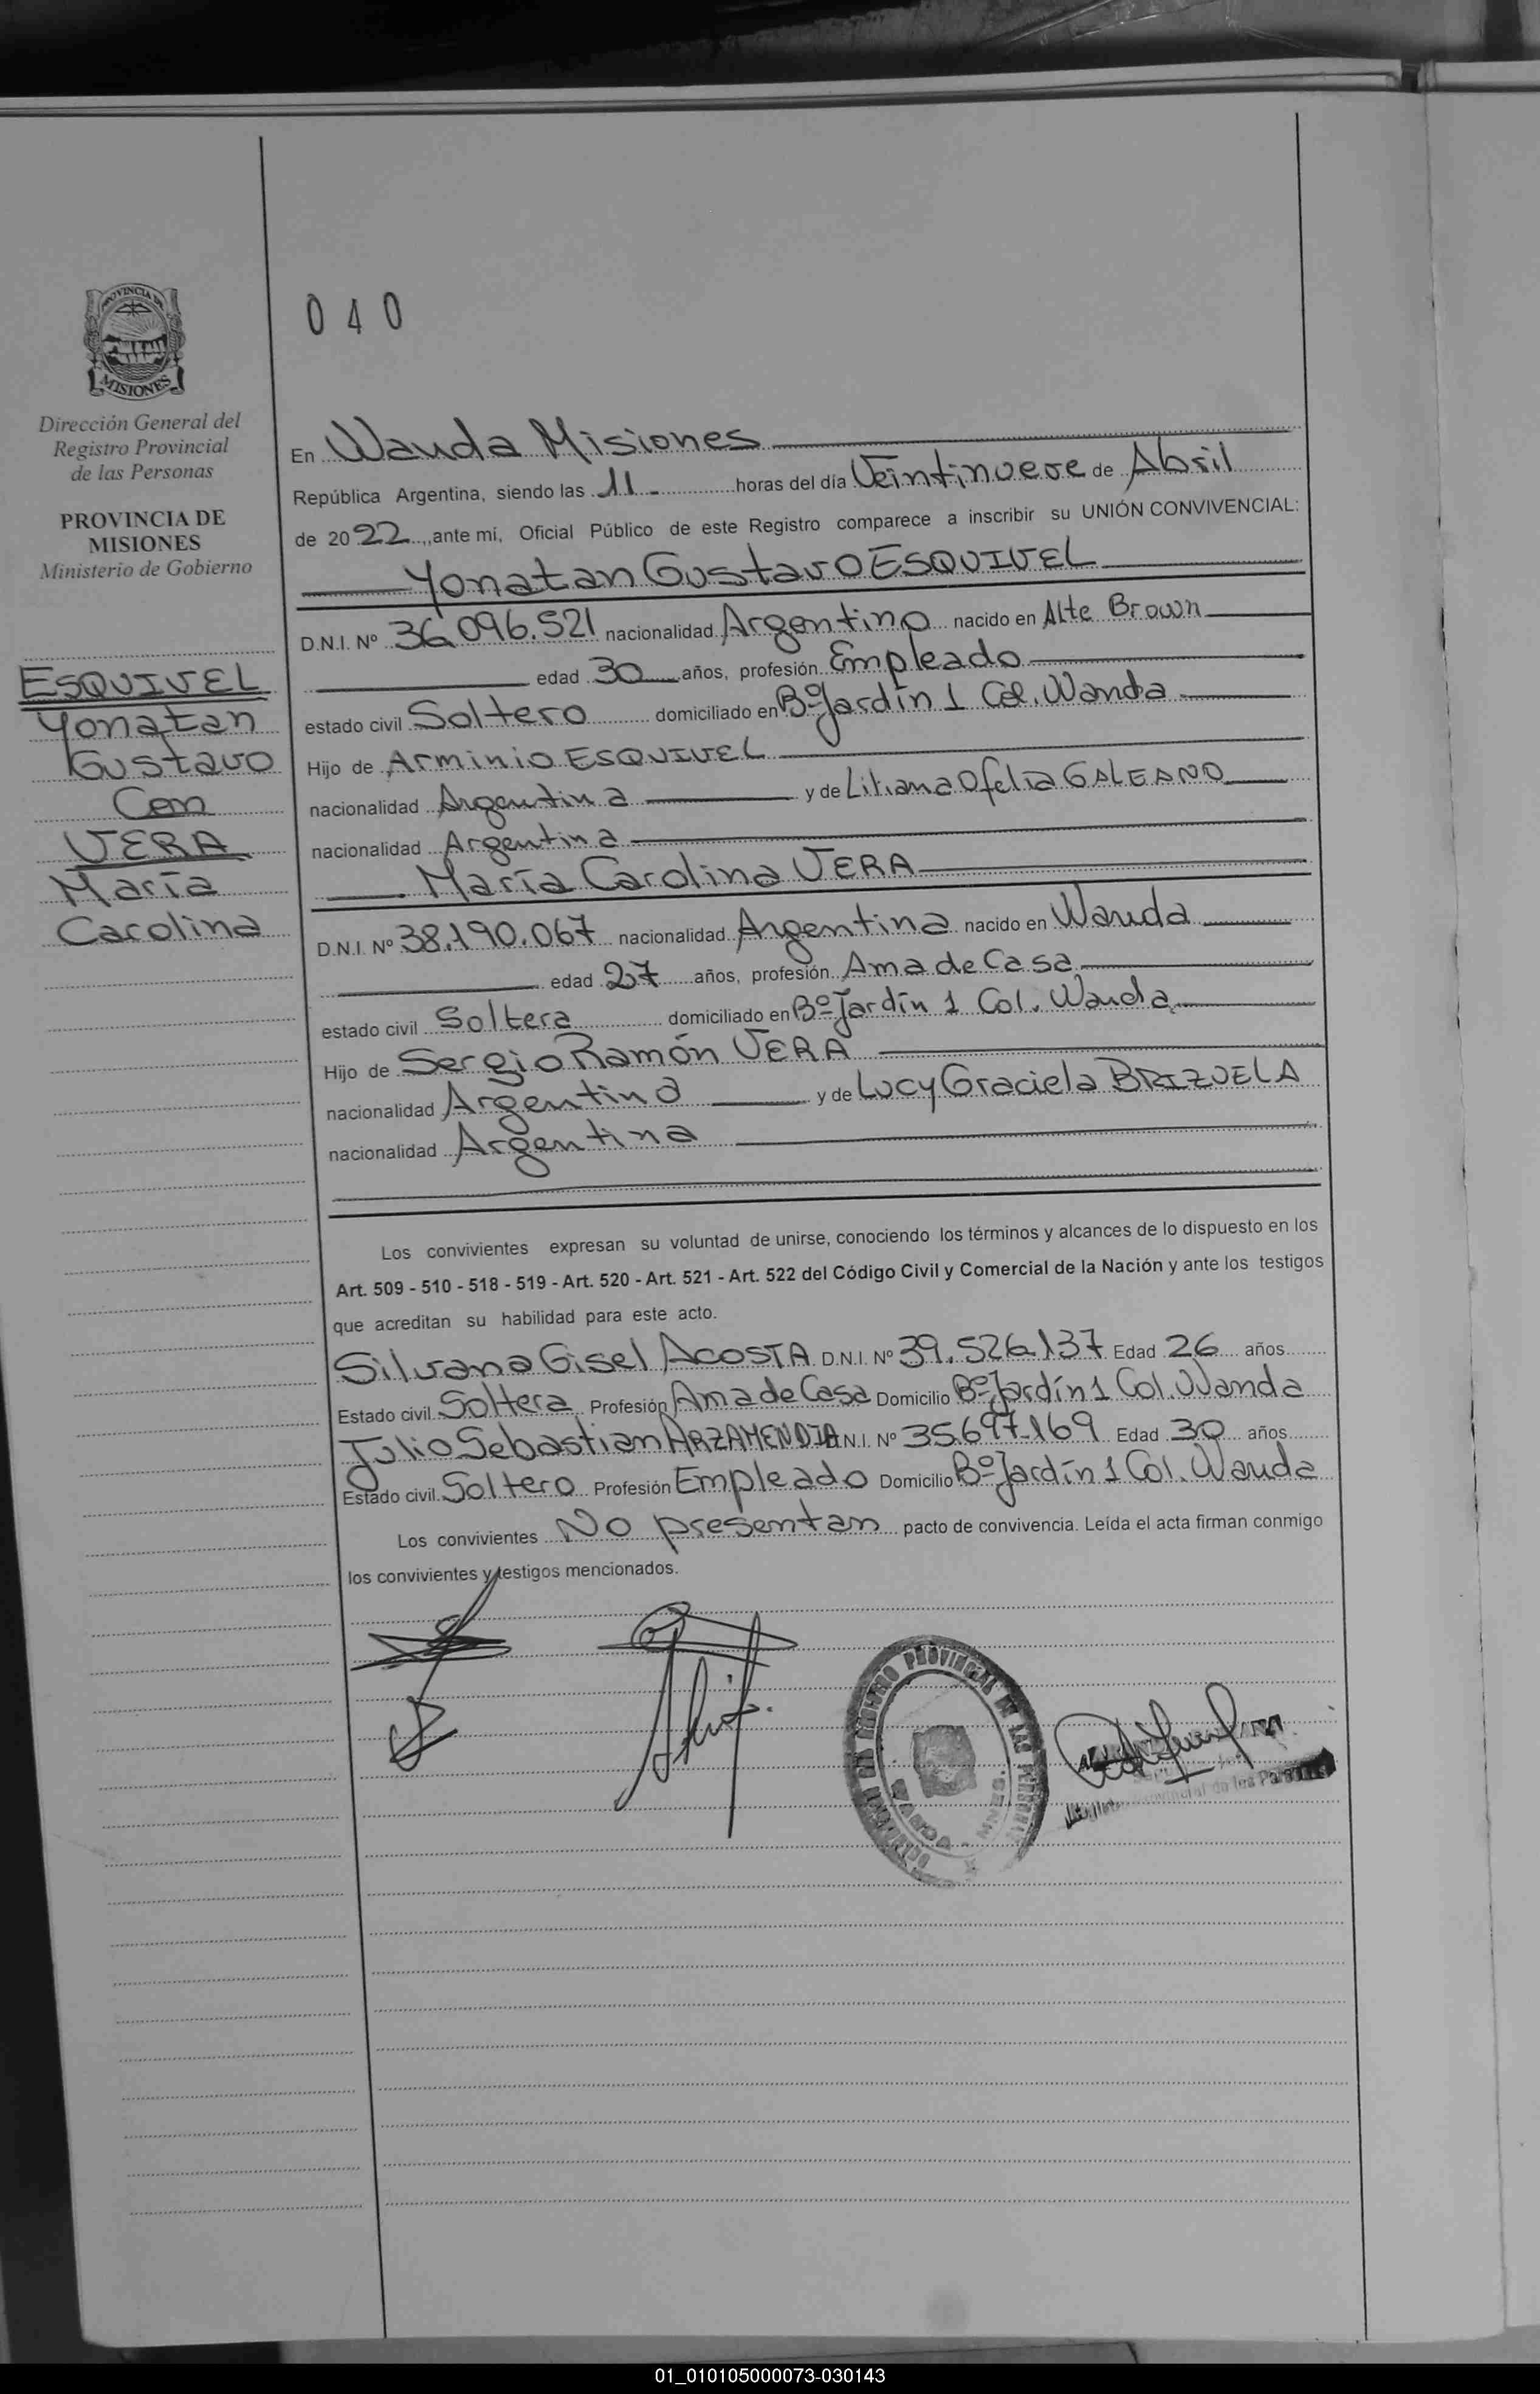 PROVINCIA DE
MISIONES
Dirección General del
Registro Provincial
de las Personas
PROVINCIA DE
MISIONES
Ministerio de Gobierno
ESQUIVEL
Yonatan
Gustavo
Con
VERA
María
Carolina
040
En Wanda Misiones
República Argentina, siendo las 11 horas del día Veintinueve de Abril
de 2022, ante mí, Oficial Público de este Registro comparece a inscribir su UNIÓN CONVIVENCIAL:
Yonatan Gustavo ESQUIVEL
D.N.I. Nº 36.096.521 nacionalidad Argentino nacido en Alte Brown
edad 30 años, profesión Empleado
estado civil Soltero domiciliado en Bº Jardín 1 Col. Wanda
Hijo de Arminio ESQUIVEL
nacionalidad Argentina y de Liliana Ofelia GALEANO
nacionalidad Argentina
María Carolina VERA
D.N.I. Nº 38.190.067 nacionalidad Argentina nacido en Wanda
edad 27 años, profesión Ama de Casa
estado civil Soltera domiciliado en Bº Jardín 1 Col. Wanda
Hijo de Sergio Ramón VERA
nacionalidad Argentina y de Lucy Graciela BRIZUELA
nacionalidad Argentina
Los convivientes expresan su voluntad de unirse, conociendo los términos y alcances de lo dispuesto en los
Art. 509 - 510 - 518 - 519 - Art. 520 - Art. 521 - Art. 522 del Código Civil y Comercial de la Nación y ante los testigos
que acreditan su habilidad para este acto.
Silvana Gisel ACOSTA D.N.I. Nº 39.526.137 Edad 26 años
Estado civil Soltera Profesión Ama de Casa Domicilio Bº Jardín 1 Col. Wanda
Julio Sebastian ARZAMENDIA D.N.I. Nº 35.697.169 Edad 30 años
Estado civil Soltero Profesión Empleado Domicilio Bº Jardín 1 Col. Wanda
Los convivientes No presentan pacto de convivencia. Leída el acta firman conmigo
los convivientes y testigos mencionados.
REGISTRO PROVINCIAL DE LAS PERSONAS
WANDA - MNES.
Provincial de las Personas
01_010105000073-030143